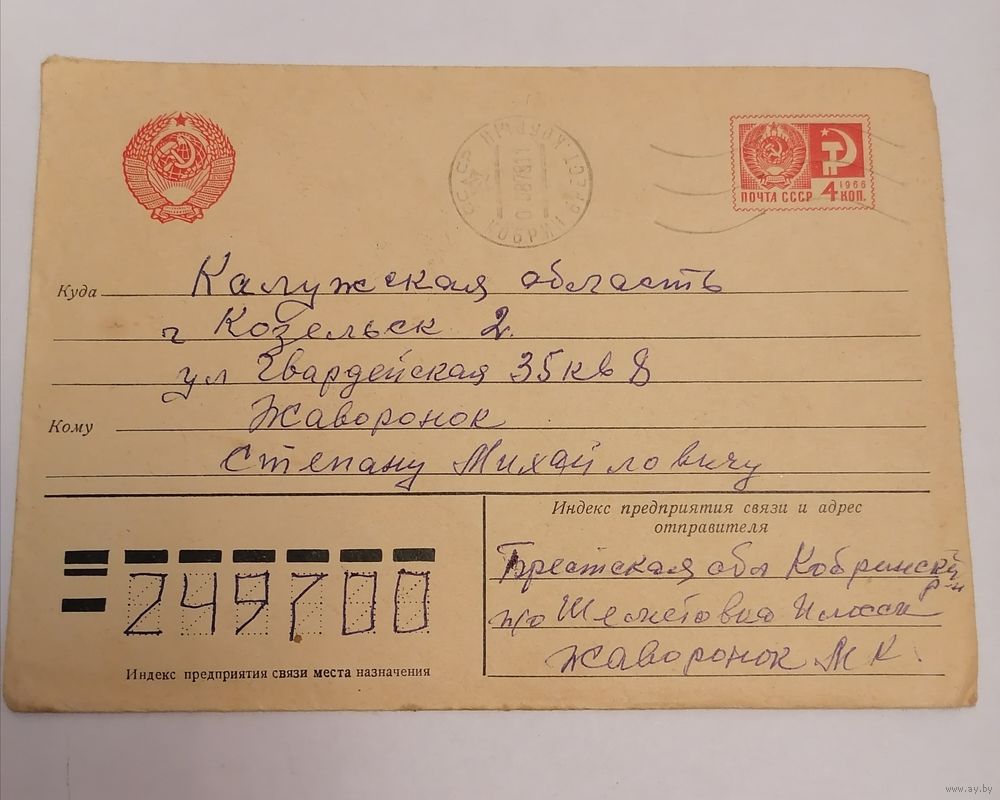 СССР
КОБРИН БРЕСТ.
1966
ПОЧТА СССР 4 КОП.
Куда Калужская область
г Козельск 2.
ул Гвардейская 35 кв 8
Кому Жаворонок
Степану Михайловичу
Индекс предприятия связи и адрес
отправителя
Брестская обл Кобринский
р-н
п/о
Жаворонок М К.
249700
Индекс предприятия связи места назначения
www.ay.by